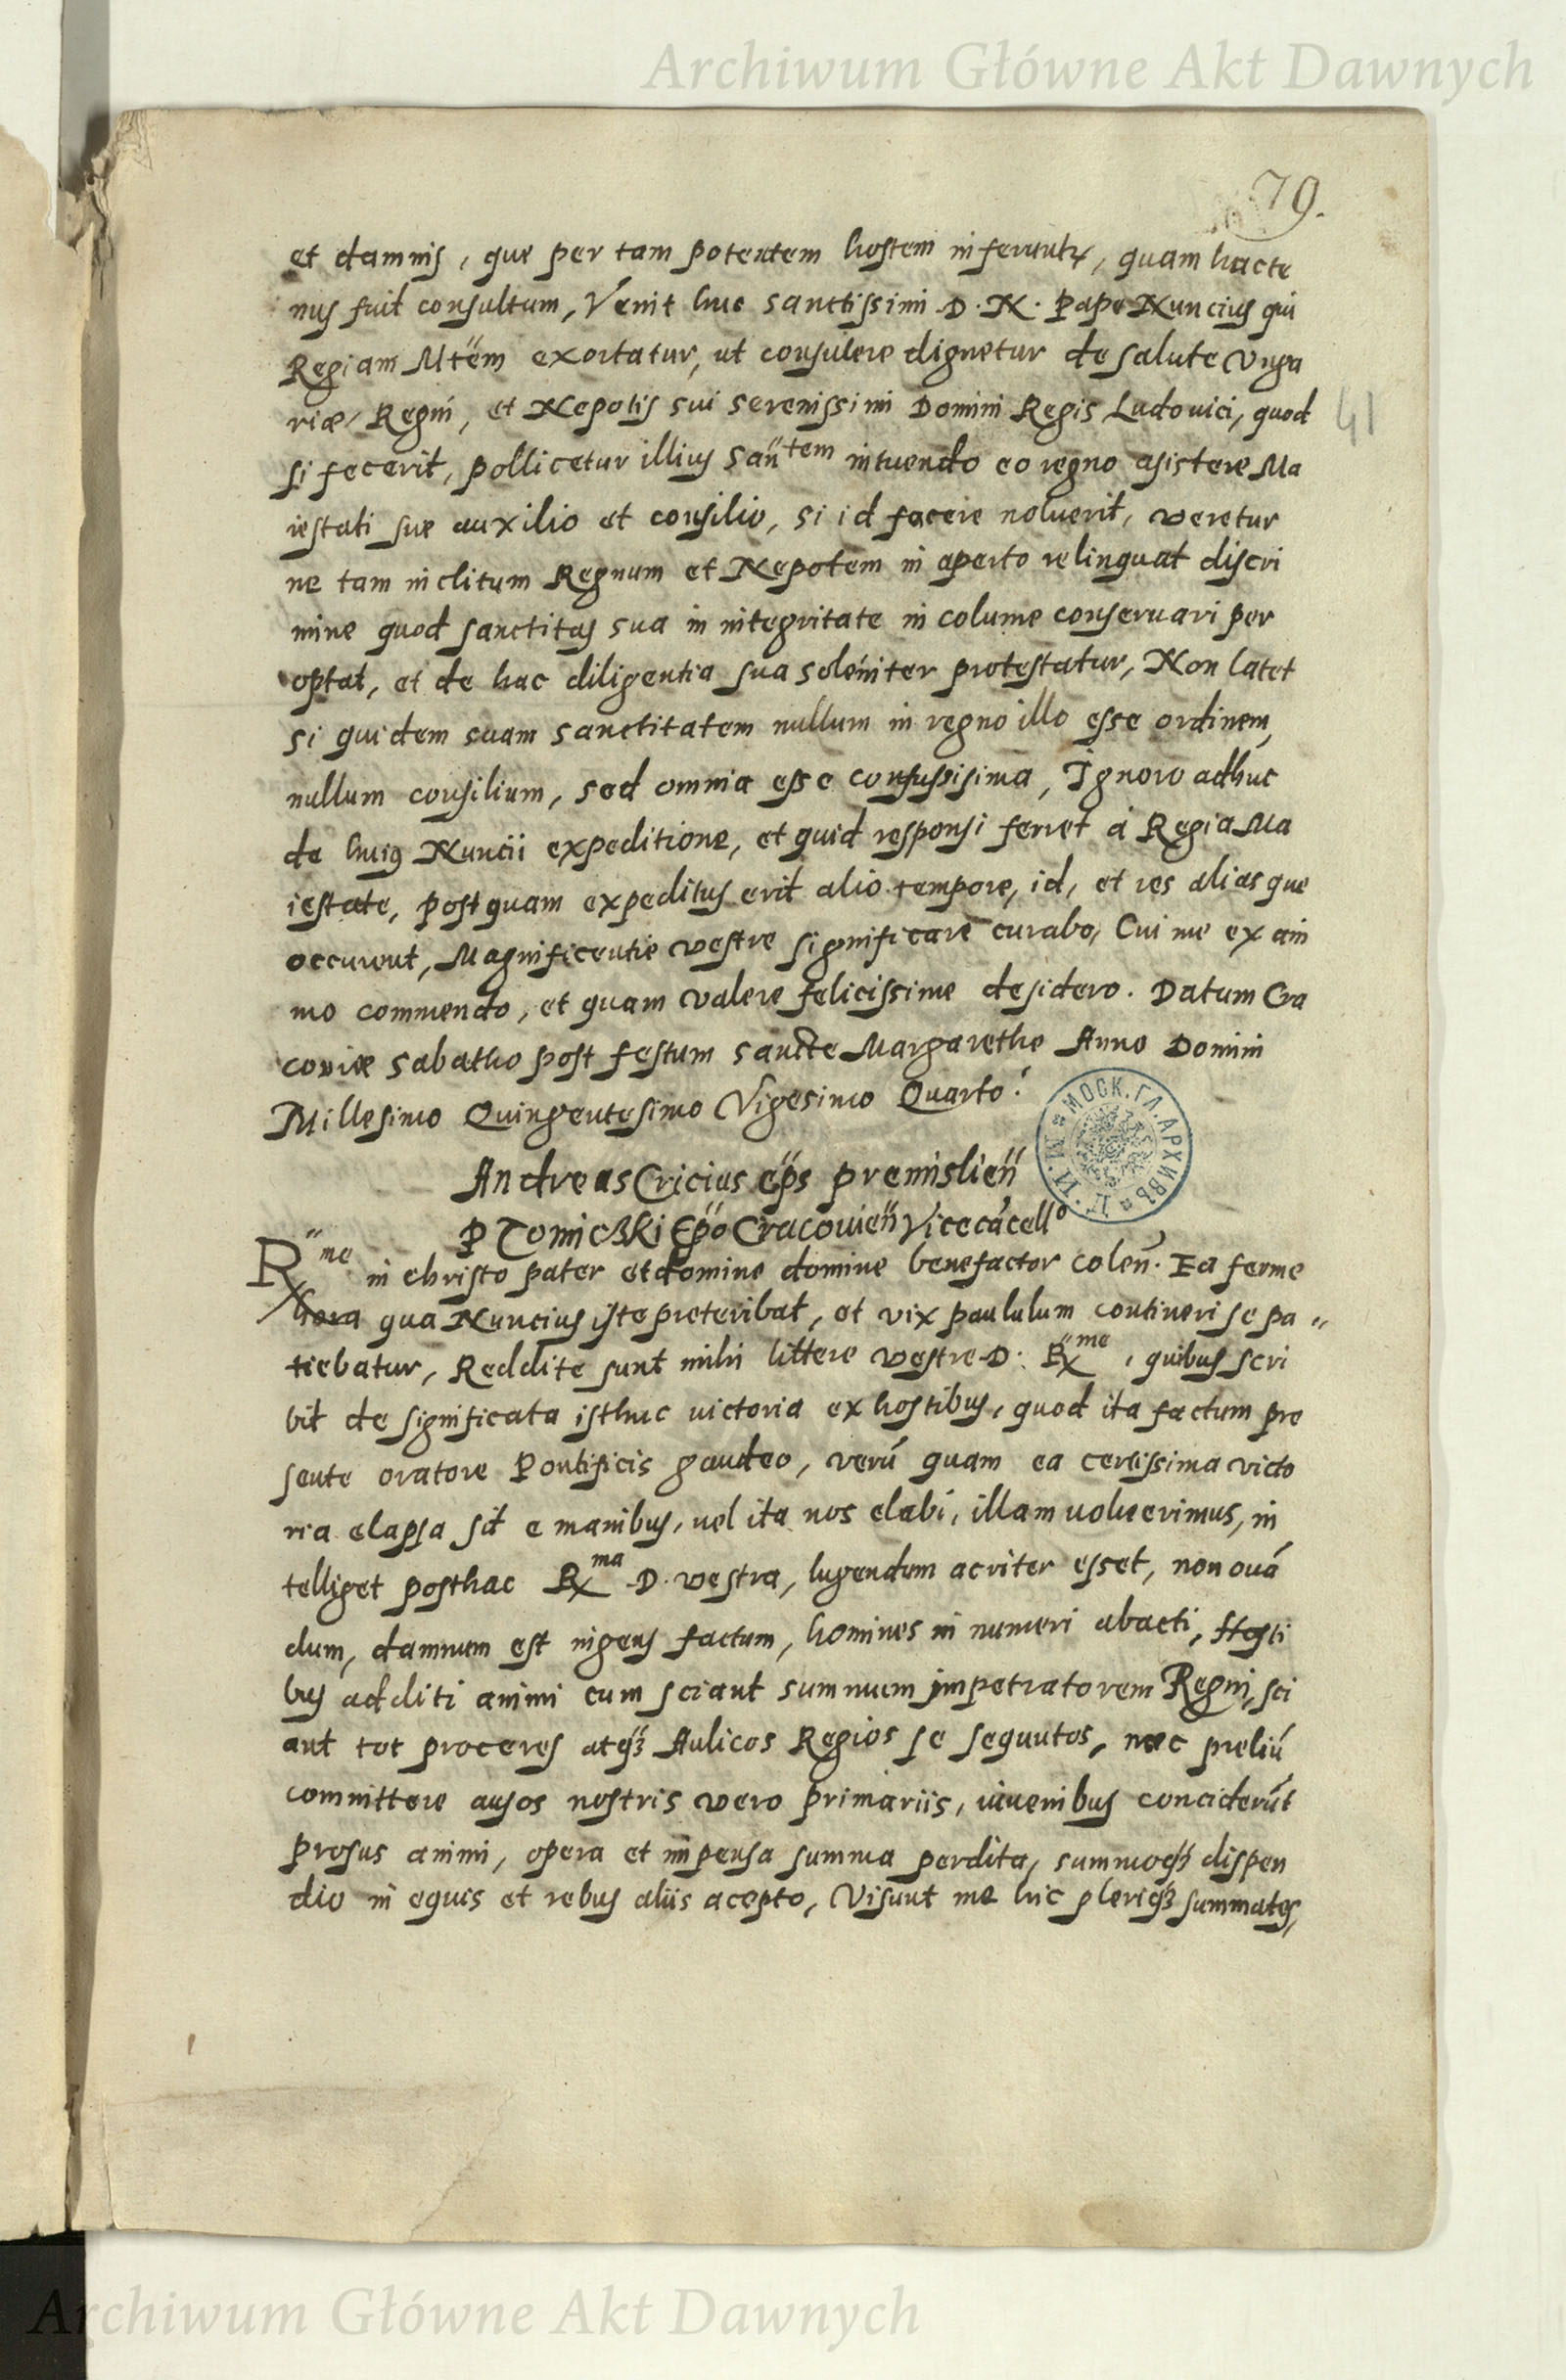 Archiwum Główne Akt Dawnych
79.
et damnis, que per tam potentem hostem inferuntr, quam hacte
nus fuit consultum, Venit huc sanctissimi D. N. Pape Nuncius qui
Regiam Mtem exortatur, ut consulere dignetur de salute Vnga
riæ Regni, et Nepotis sui serenissimi Domini Regis Ludovici, quod
41
si fecerit, pollicetur illius Santem intuendo eo regno asistere Ma
iestati sue auxilio et consilio, si id facere noluerit, veretur
ne tam inclitum Regnum et Nepotem in aperto relinquat discri
mine quod sanctitas sua in integritate in colume conseruari per
optat, et de hac diligentia sua soleniter protestatur, Non latet
si quidem suam sanctitatem nullum in regno illo esse ordinem,
nullum consilium, sed omnia esse confussisima, Ignoro adhuc
de huiq Nuncii expeditione, et quid responsi ferret á Regia Ma
iestate, postquam expeditus erit alio tempore, id, et res alias que
occurent, Magnificentie vestre significare curabo, Cui me ex ani
mo commendo, et quam valere felicissime desidero. Datum Cra
coviæ sabatho post festum sancte Margarethe Anno Domini
Millesimo Quingentesimo Vigesimo Quarto.
МОСК. ГЛ. АРХИВЪ М. И. Д.
Andreas Cricius eps premislien
P Tomiczki Epo Cracovien Vicecacello
Rme in christo pater et domine domine benefactor colen. Ea ferme
hora qua Nuncius iste preteribat, et vix paululum contineri se pa "
tiebatur, Reddite sunt mihi littere vestre D. Rme, quibus scri
bit de significata isthuc uictoria ex hostibus, quod ita factum pre
sente oratore Pontificis gaudeo, verú quam ea certissima victo
ria elapsa sit e manibus, uel ita nos elabi, illam uoluerimus, in
telliget posthac Rma D. vestra, lugendum acriter esset, non ouá
dum, damnum est ingens factum, homines in numeri abacti, Hosti
bus additi animi cum sciant summum impetratorem Regni, sci
ant tot proceres atqз Aulicos Regios se sequutos, nec preliú
committere ausos nostris vero primariis, iuuenibus conciderút
prosus animi, opera et impensa summa perdita, summoqз dispen
dio in equis et rebus aliis acepto, Visunt me hic pleriqз summates,
Archiwum Główne Akt Dawnych